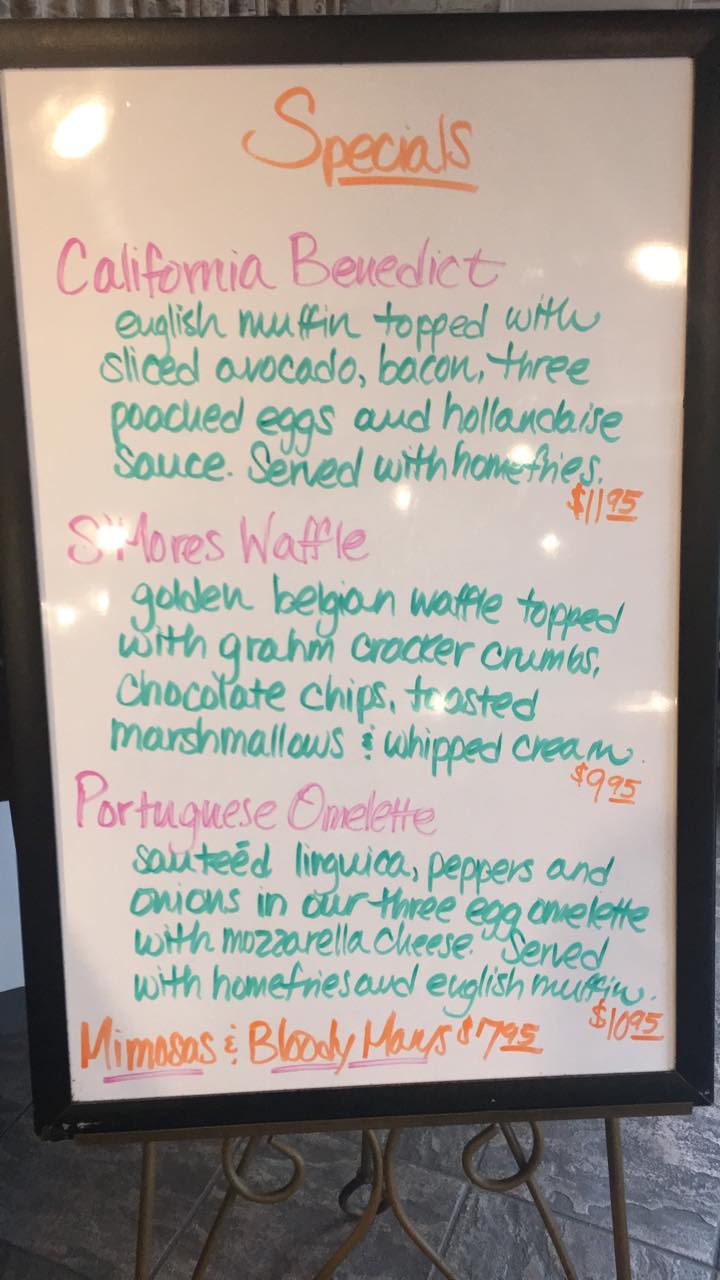 Specials
California Benedict
english muffin topped with
sliced avocado, bacon, three
poached eggs and hollandaise
sauce. Served with homefries.
$11 95
S'Mores Waffle
golden belgian waffle topped
with grahm cracker crumbs,
chocolate chips, toasted
marshmallows & whipped cream.
$9 95
Portuguese Omelette
sauteéd linguica, peppers and
onions in our three egg omelette
with mozzarella cheese. Served
with homefries and english muffin.
$10 95
Mimosas & Bloody Marys $7 95